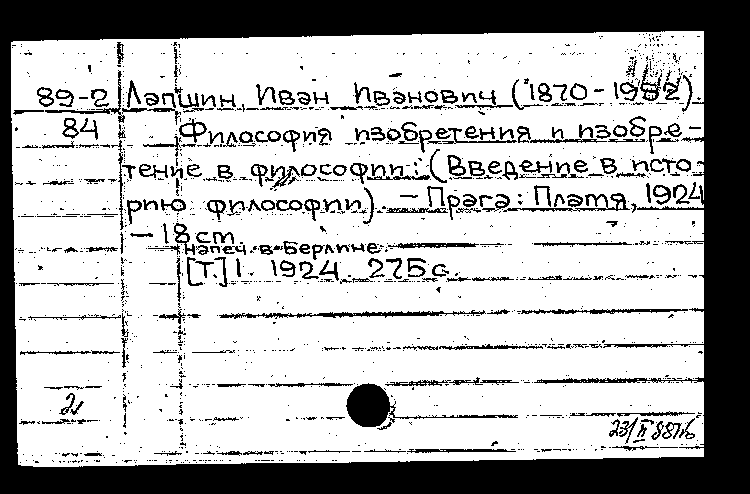 89-2 Лапшин, Иван Иванович (1870-1952).
84 Философия изобретения и изобре-
тение в философии: (Введение в исто-
рию философии). — Прага: Пламя, 1924
— 18 cm
Напеч. в Берлине.
[Т.] 1. 1924. 275 с.
23/II 88